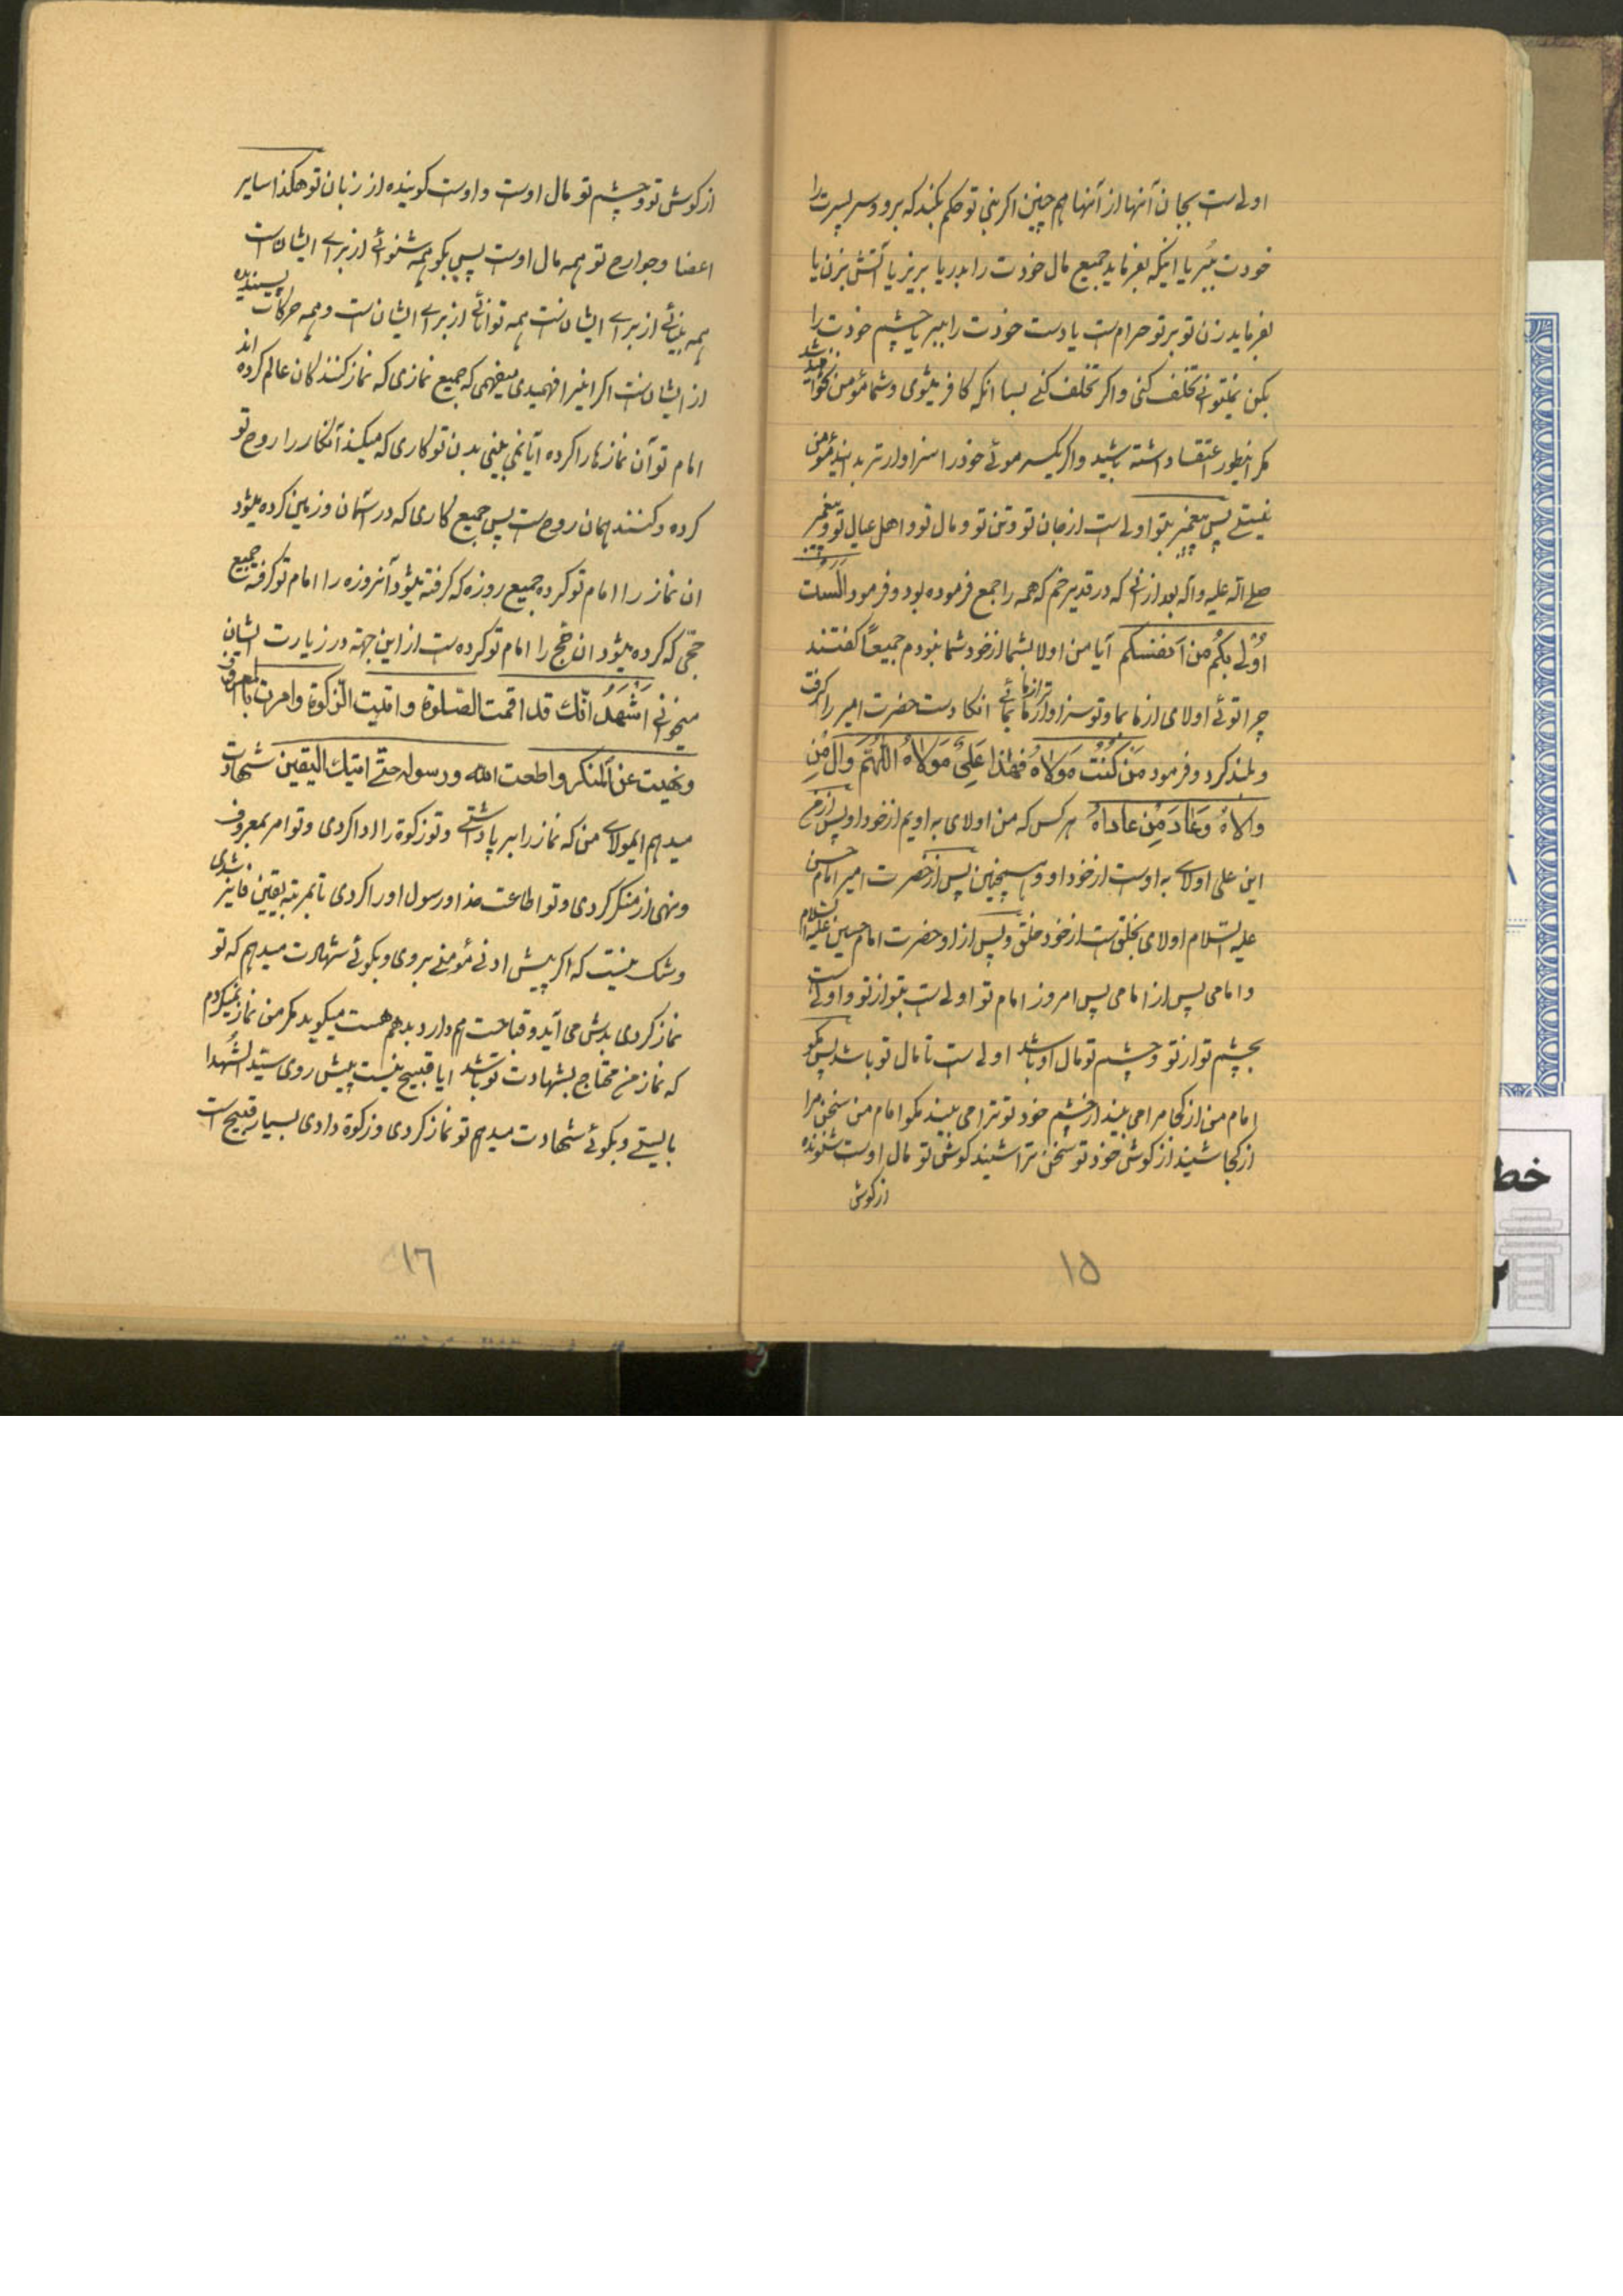 اولی است بجان آنها از آنها هم چنین اگر نبی تو حکم بکند که برو و سر پسرت را
خودت ببُر یا اینکه بفرماید جمیع مال خودت را بدریا بریز یا آتش بزن یا
بفرماید زن تو بر تو حرام است یا دست خودت را ببر یا چشم خودت را
بکن نمیتوانی تخلف کنی و اگر تخلف کنی بسا انکه کافر میشوی و شما مؤمن نخواهید شد
مگر اینطور اعتقاد داشته باشید و اگر یکسر موئی خود را سزاوارتر بدانید مؤمن
نیستی پس پیغمبر بتو اولی است از جان تو و تن تو و مال تو و اهل عیال تو و پیغمبر
صلی اله علیه و آله بعد از آنی که در قدیر خم که همه را جمع فرموده بود و فرمود اَلَستُ
اَوْلی بِکُم مِن اَنفسکم آیا من اولا بشما از خود شما نبودم جمیعاً گفتند
چرا توئی اولای از ما بما و تو سزاوارتر از مائی بمائی انگاه دست حضرت امیر را گرفت
و بلند کرد و فرمود مَن کُنتُ مَولاهُ فهذا عَلیٌ مَولاهُ اللّهُمَّ وَالِ مَن
والاهُ وَعَادِ مَن عاداهُ هر کس که من اولای به اویم از خود او پس از من
این علی اولای به اوست از خود او و همچنین پس از حضرت امیر امام حسن
علیه السّلام اولای بخلق است از خود خلق و پس از او حضرت امام حسین علیه السلام
و امامی پس از امامی پس امروز امام تو اولی است بتو از تو و اولی است
بچشم تو از تو و چشم تو مال او باشد اولی است تا مال تو باشد پس مگو
امام من از کجا مرا می بیند از چشم خود تو ترا می بیند مگو امام من سخن مرا
از کجا شنید از گوش خود تو سخن ترا شنید گوش تو مال اوست شنونده
از گوش
۱۵
از گوش تو و چشم تو مال اوست و اوست گوینده از زبان تو هکذا سایر
اعضا و جوارح تو همه مال اوست پس بگو همه شنوائی از برای ایشان است
همه بینائی از برای ایشان است همه توانائی از برای ایشان است و همه حرکات پسندیده
از ایشان است اگر اینرا فهمیدی میفهمی که جمیع نمازی که نماز کنندگان عالم کرده اند
امام تو آن نمازها را کرده آیا نمی بینی بدن تو کاری که میکند آنکار را روح تو
کرده و کننده همان روح است پس جمیع کاری که در آسمان و زمین کرده میشود
ان نماز را امام تو کرده جمیع روزه که گرفته میشود آنروزه را امام تو گرفته جمیع
حجّی که کرده میشود ان حج را امام تو کرده است از این جهة در زیارت ایشان
میخوانی اَشهَدُ انّک قد اقمت الصّلوة و اتیت الزکوة وامرت بالمعروف
ونهیت عن المنکر واطعت الله ورسوله حتی اتیک الیقین شهادت
میدهم ایمولای من که نماز را بر پا داشتی و تو زکوة را ادا کردی و تو امر بمعروف
و نهی از منکر کردی و تو اطاعت خدا و رسول او را کردی تا بمرتبه یقین فایز شدی
و شک نیست که اگر پیش ادنی مؤمنی بروی و بگوئی شهادت میدهم که تو
نماز کردی بدش می آید و قباحت هم دارد بد هم هست میگوید مگر من نماز نمیکردم
که نماز من محتاج بشهادت تو باشد ایا قبیح نیست پیش روی سیّد الشهدا
بایستی و بگوئی شهادت میدهم تو نماز کردی و زکوة دادی بسیار قبیح است
۱۶
خط
۲